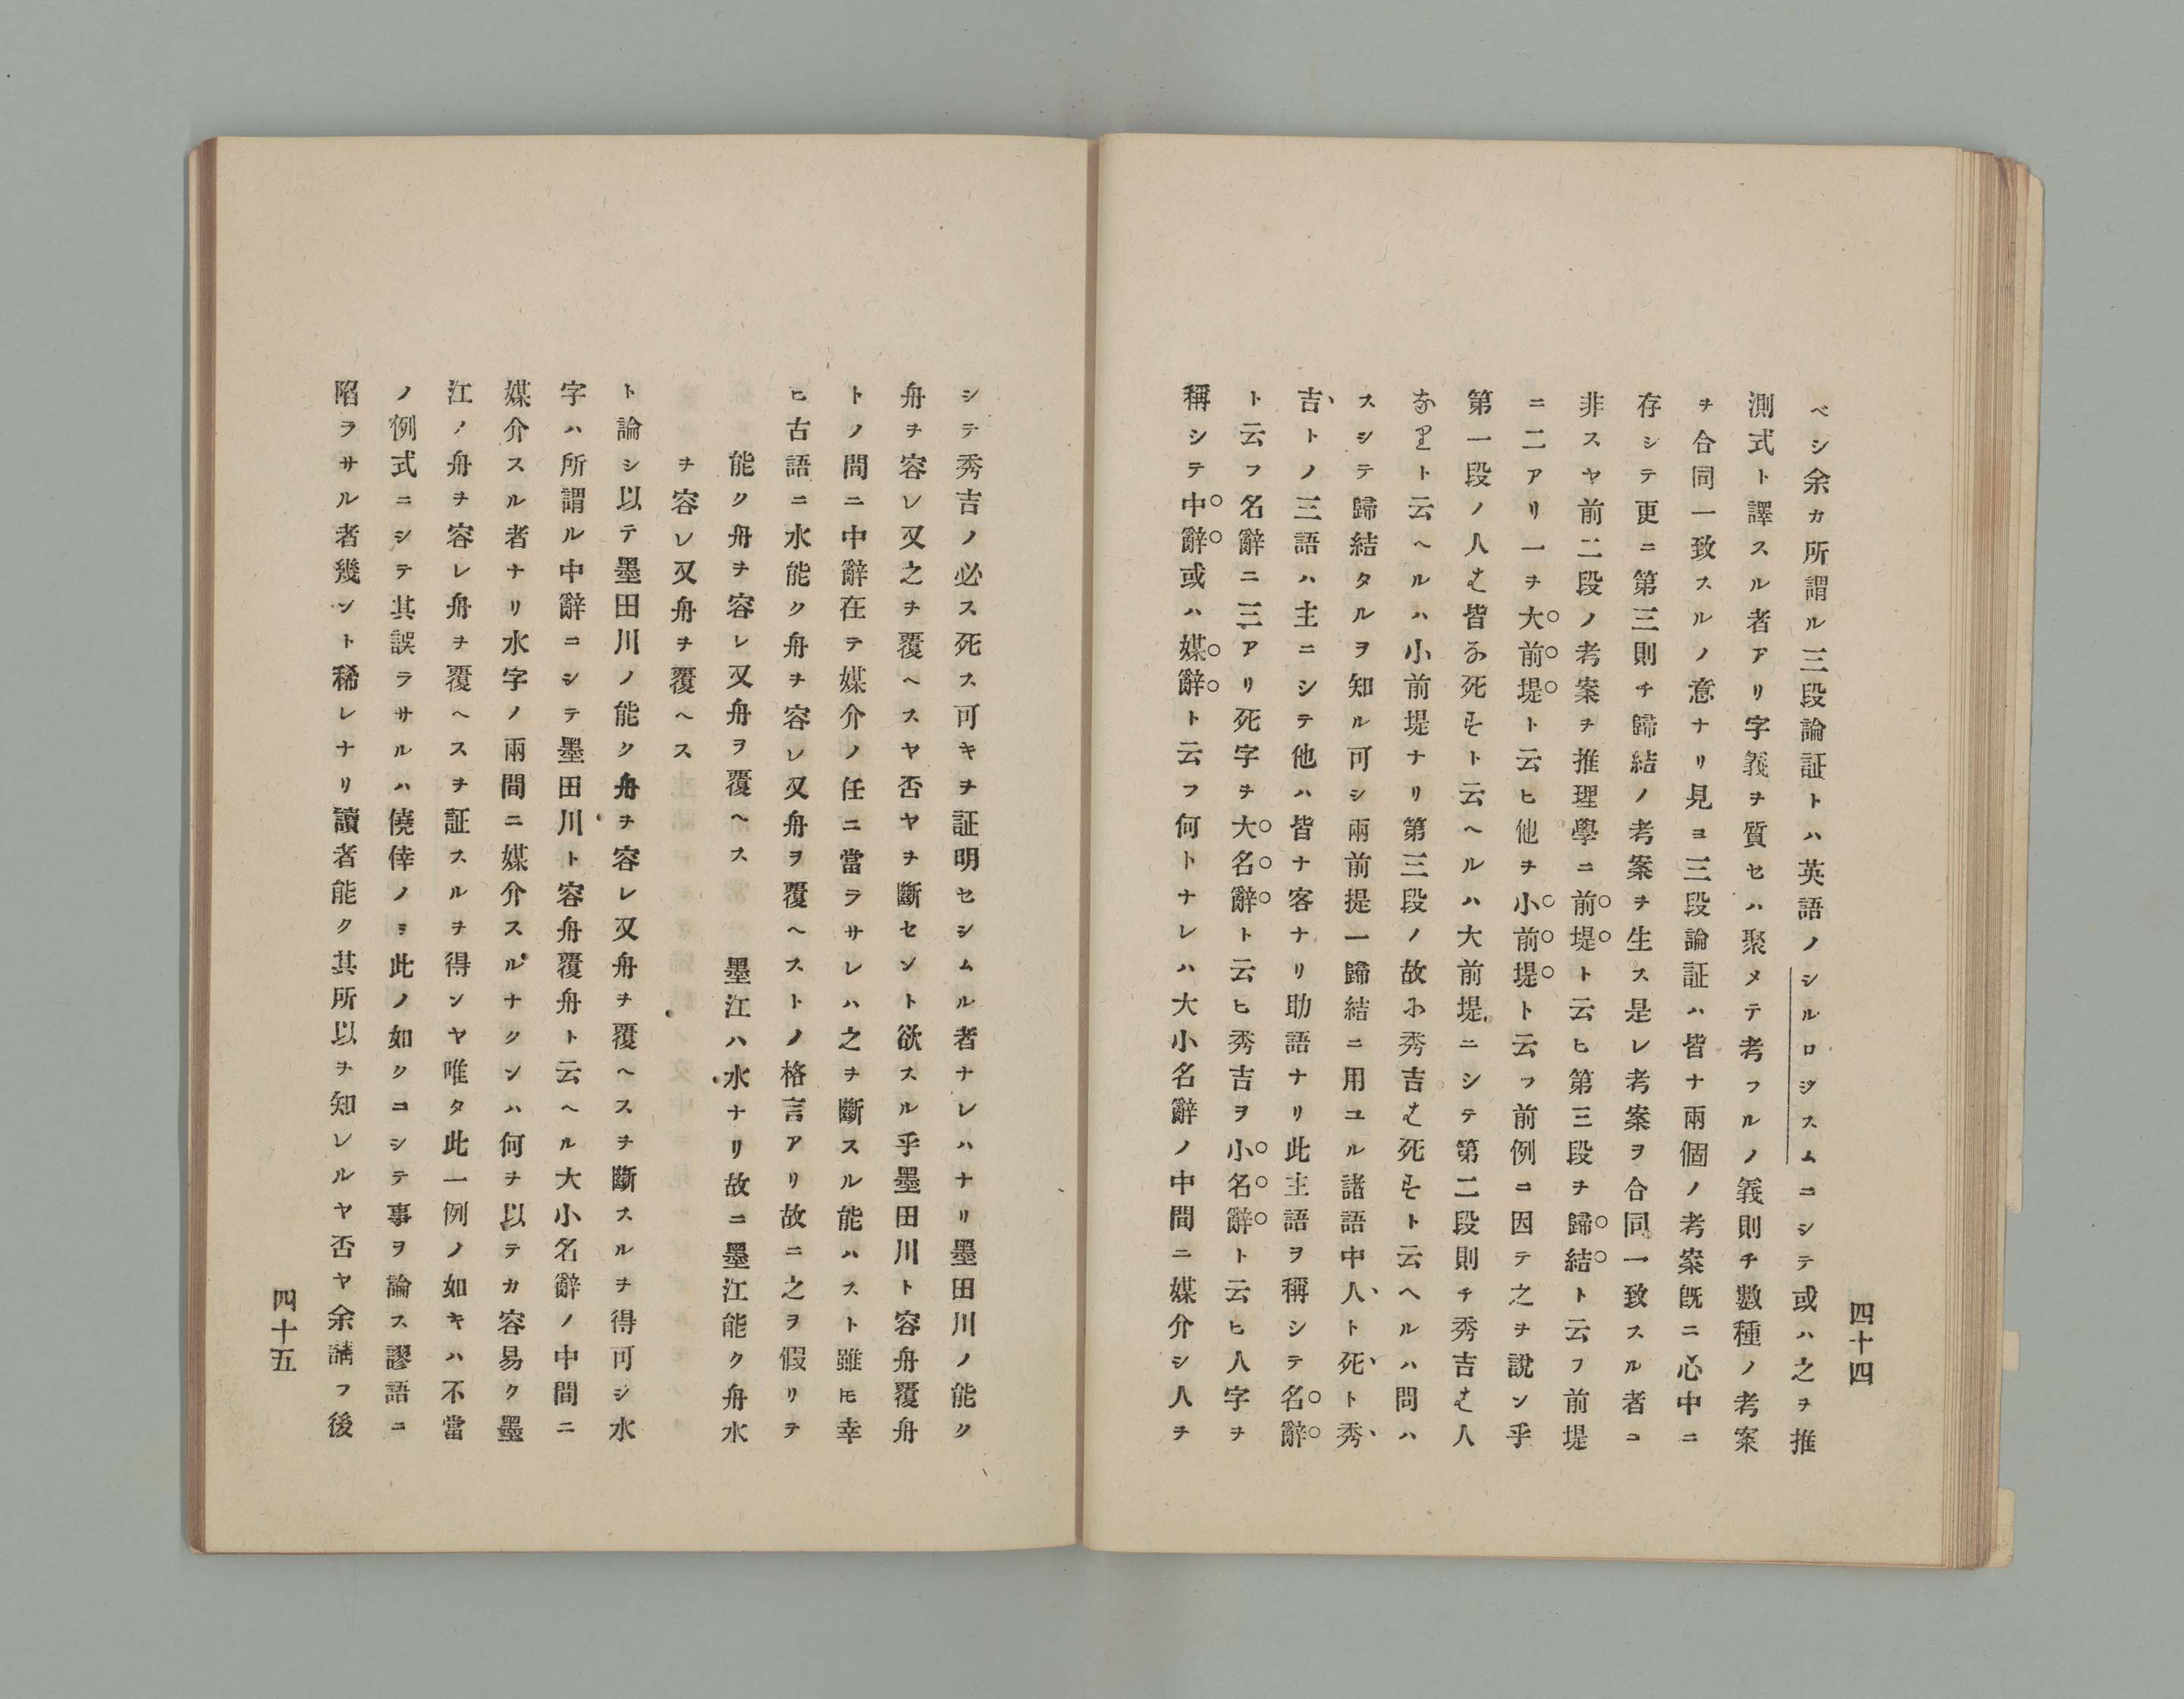 ベシ余カ所謂ル三段論証トハ英語ノシルロヂスムニシテ或ハ之ヲ推
測式ト譯スル者アリ字義ヲ質セハ聚メテ考フルノ義則チ數種ノ考案
ヲ合同一致スルノ意ナリ見ヨ三段論証ハ皆ナ兩個ノ考案既ニ心中ニ
存シテ更ニ第三則チ歸結ノ考案ヲ生ス是レ考案ヲ合同一致スル者ニ
非スヤ前二段ノ考案ヲ推理學ニ前堤ト云ヒ第三段ヲ歸結ト云フ前堤
ニ二アリ一ヲ大前堤ト云ヒ他ヲ小前堤ト云フ前例ニ因テ之ヲ說ン乎
第一段ノ人は皆な死すト云ヘルハ大前堤ニシテ第二段則チ秀吉は人
なりト云ヘルハ小前堤ナリ第三段ノ故に秀吉は死すト云ヘルハ問ハ
スシテ歸結タルヲ知ル可シ兩前提一歸結ニ用ユル諸語中人ト死ト秀
吉トノ三語ハ主ニシテ他ハ皆ナ客ナリ助語ナリ此主語ヲ稱シテ名辭
ト云フ名辭ニ三アリ死字ヲ大名辭ト云ヒ秀吉ヲ小名辭ト云ヒ人字ヲ
稱シテ中辭或ハ媒辭ト云フ何トナレハ大小名辭ノ中間ニ媒介シ人ヲ
四十四
シテ秀吉ノ必ス死ス可キヲ証明セシムル者ナレハナリ墨田川ノ能ク
舟ヲ容レ又之ヲ覆ヘスヤ否ヤヲ斷セント欲スル乎墨田川ト容舟覆舟
トノ間ニ中辭在テ媒介ノ任ニ當ラサレハ之ヲ斷スル能ハスト雖𪜈幸
ヒ古語ニ水能ク舟ヲ容レ又舟ヲ覆ヘストノ格言アリ故ニ之ヲ假リテ
能ク舟ヲ容レ又舟ヲ覆ヘス 墨江ハ水ナリ故ニ墨江能ク舟水
ヲ容レ又舟ヲ覆ヘス
ト論シ以テ墨田川ノ能ク舟ヲ容レ又舟ヲ覆ヘスヲ斷スルヲ得可シ水
字ハ所謂ル中辭ニシテ墨田川ト容舟覆舟ト云ヘル大小名辭ノ中間ニ
媒介スル者ナリ水字ノ兩間ニ媒介スルナクンハ何ヲ以テカ容易ク墨
江ノ舟ヲ容レ舟ヲ覆ヘスヲ証スルヲ得ンヤ唯タ此一例ノ如キハ不當
ノ例式ニシテ其誤ラサルハ僥倖ノミ此ノ如クニシテ事ヲ論ス謬語ニ
陷ラサル者幾ント稀レナリ讀者能ク其所以ヲ知レルヤ否ヤ余請フ後
四十五